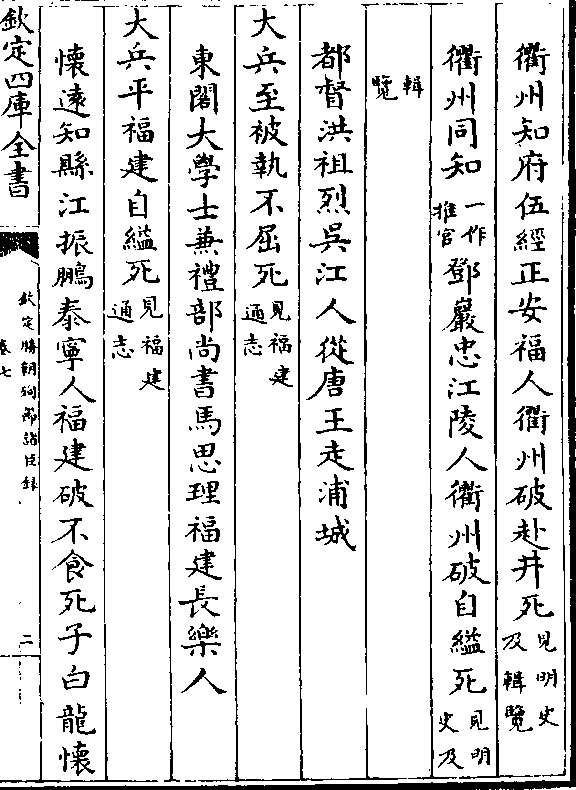 衢州知府伍經正安福人衢州破赴井死見明史及輯覽
衢州同知一作推官鄧巖忠江陵人衢州破自縊死見明史及
輯覽
都督洪祖烈吳江人從唐王走浦城
大兵至被執不屈死見福建通志
東閣大學士兼禮部尚書馬思理福建長樂人
大兵平福建自縊死見福建通志
懷遠知縣江振鵬泰寧人福建破不食死子白龍懷
欽定四庫全書
欽定勝朝殉節諸臣録
卷七
二